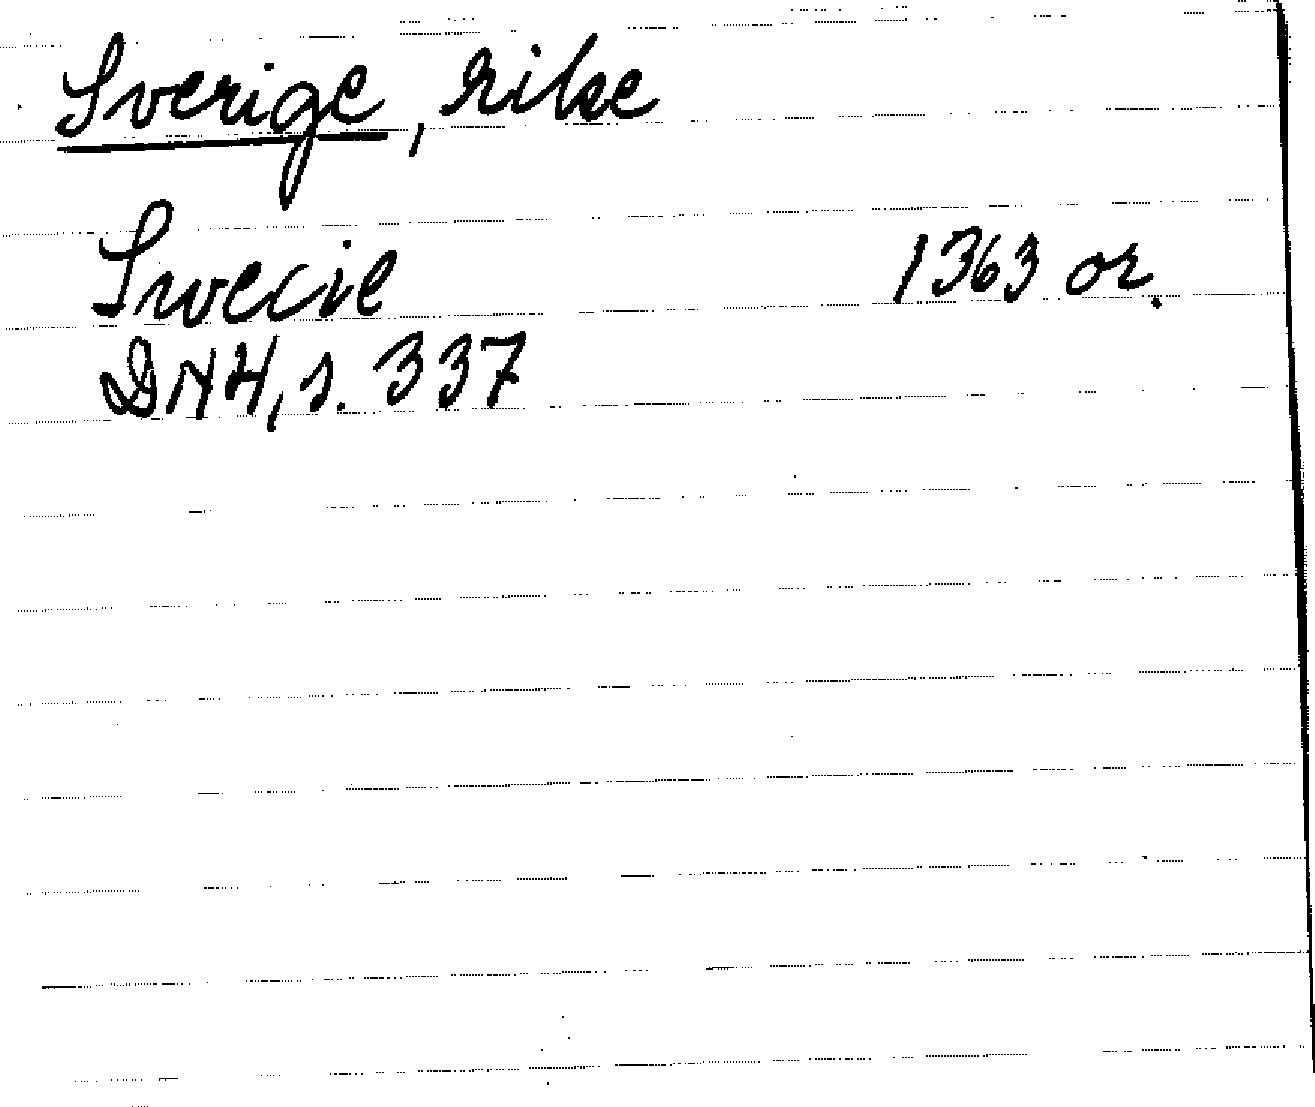 Sverige, rike
Swecie 1363 or.
DN4, s. 337